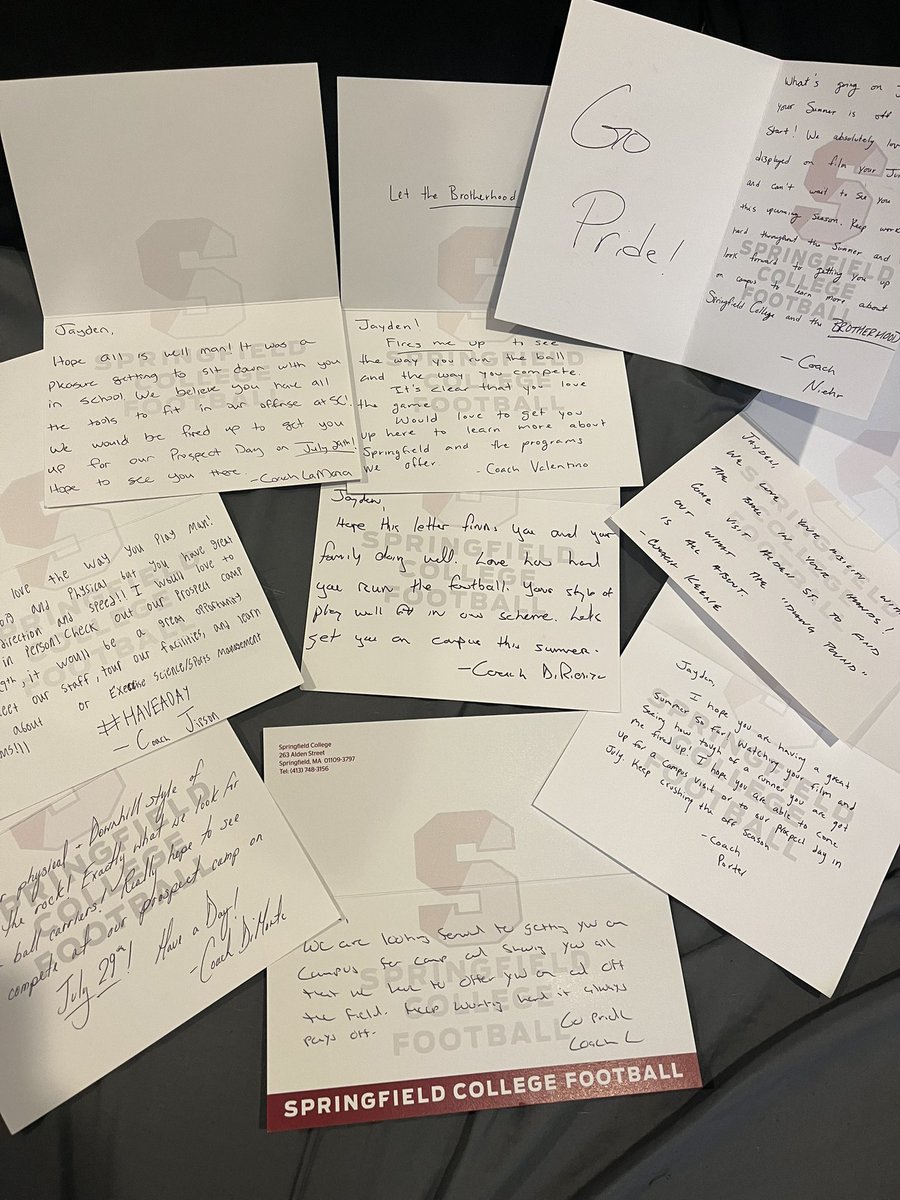 Go
Pride!
What's going on J
your Summer is off
Start! We absolutely lov
displayed on film your Jun
and can't wait to see you
this upcoming season. Keep work
hard throughout the Summer and
look forward to getting you up
on campus to learn more about
Springfield College and the BROTHERHOOD
- Coach
Niehr
SPRINGFIELD
COLLEGE
FOOTBALL
Let the Brotherhood
Jayden,
Hope all is well man! It was a
pleasure getting to sit down with you
in school. We believe you have all
the tools to fit in our offense at SC!
We would be fired up to get you
up for our Prospect Day on July 29th!
Hope to see you there.
- Coach LaMana
SPRINGFIELD
COLLEGE
FOOTBALL
Jayden!
Fires me up to see
the way you run the ball
and the way you compete.
It's clear that you love
the game.
Would love to get you
up here to learn more about
Springfield and the programs
we offer.
- Coach Valentino
SPRINGFIELD
COLLEGE
FOOTBALL
JAYDEN,
WE LOVE YOUR PHYSICALITY WITH
THE BALL IN YOUR HANDS!
COME VISIT ALDEN ST. TO FIND
OUT WHAT THE
IS ALL ABOUT.
COACH KEENIE
love the way you play man!
and Physical but you have great
direction and speed!! I would love to
in person! Check out our Prospect camp
9th, it would be a great opportunity
meet our staff, tour our facilities, and learn
about or Exercise science/sports management
ms!!!
#HAVEADAY
- Coach Jirson
SPRINGFIELD
COLLEGE
FOOTBALL
Jayden,
Hope this letter finds you and your
family doing well. Love how hard
you run the football. Your style of
play will fit in our scheme. Let's
get you on campus this summer.
- Coach
SPRINGFIELD
COLLEGE
FOOTBALL
Jayden,
I hope you are having a great
Summer so far! Watching your film and
Seeing how tough of a runner you are got
me fired up! I hope you are able to come
up for a campus visit or to our prospect day in
July. Keep crushing the off season
- Coach
Porter
SPRINGFIELD
COLLEGE
FOOTBALL
physical + Downhill style of
the rock! Exactly what we look for
ball carriers! Really hope to see
compete at our prospect camp on
July 29th! Have a Day!
- Coach DiMonte
SPRINGFIELD
COLLEGE
FOOTBALL
Springfield College
263 Alden Street
Springfield, MA 01109-3797
Tel: (413) 748-3156
We are looking forward to getting you on
Campus for camp and showing you all
that we have to offer you on and off
the field. Keep working hard it always
pays off.
Go Pride
Coach L
SPRINGFIELD
COLLEGE
FOOTBALL
SPRINGFIELD COLLEGE FOOTBALL